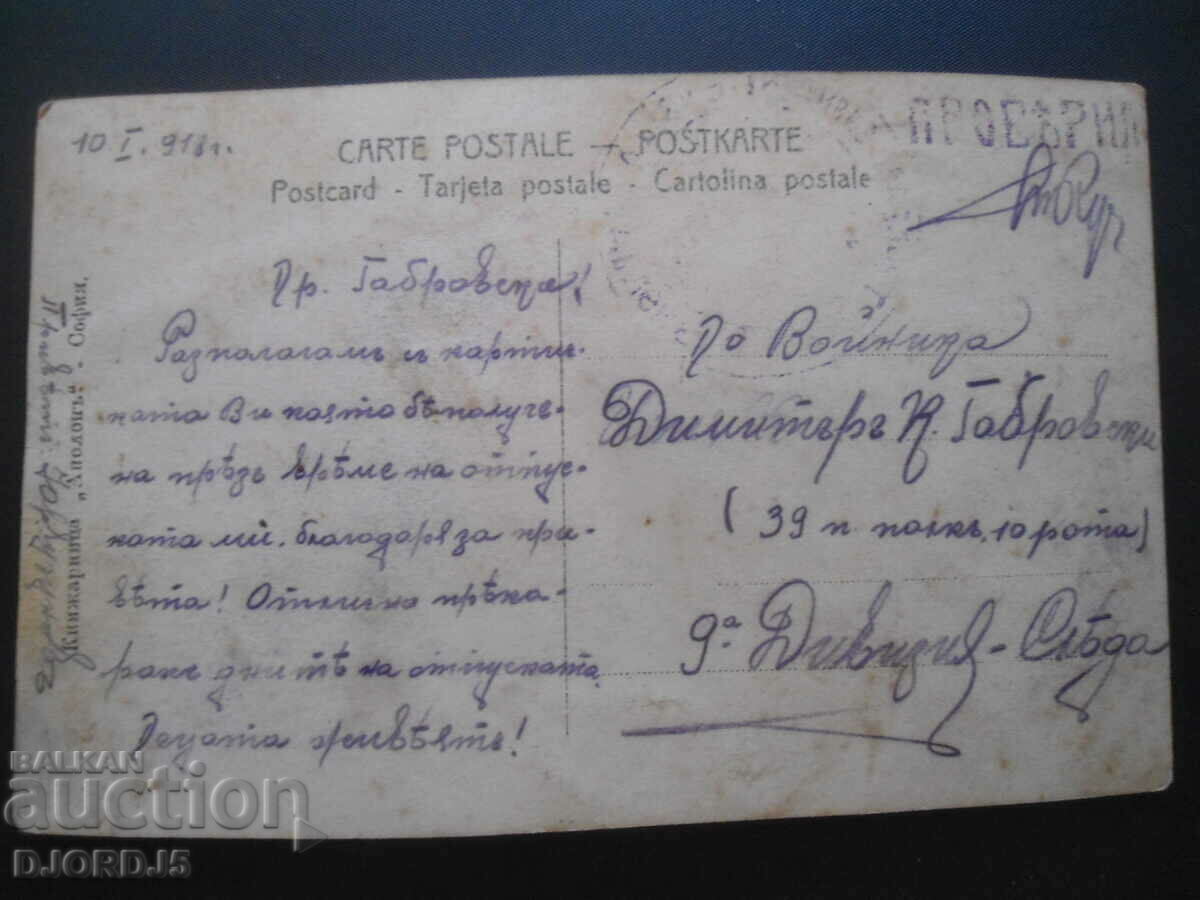 10 I. 918 г.
CARTE POSTALE — POSTKARTE
Postcard - Tarjeta postale - Cartolina postale
ПРОВѢРИЛ
Др. Габровски!
Разполагамъ съ картич-
ката Ви която бѣ получе-
на прѣзъ врѣме на отпус-
ката ми. Благодаря за при-
вѣта! Отлично прѣка-
рахъ днитѣ на отпуската
Децата живѣятъ!
До Войника
Димитъръ К. Габровски
(39 п. полкъ, 10 рота)
9а Дивизия - Слѣда
Книжарница „Аполонъ" - София.
BALKAN
auction
DJORDJ5